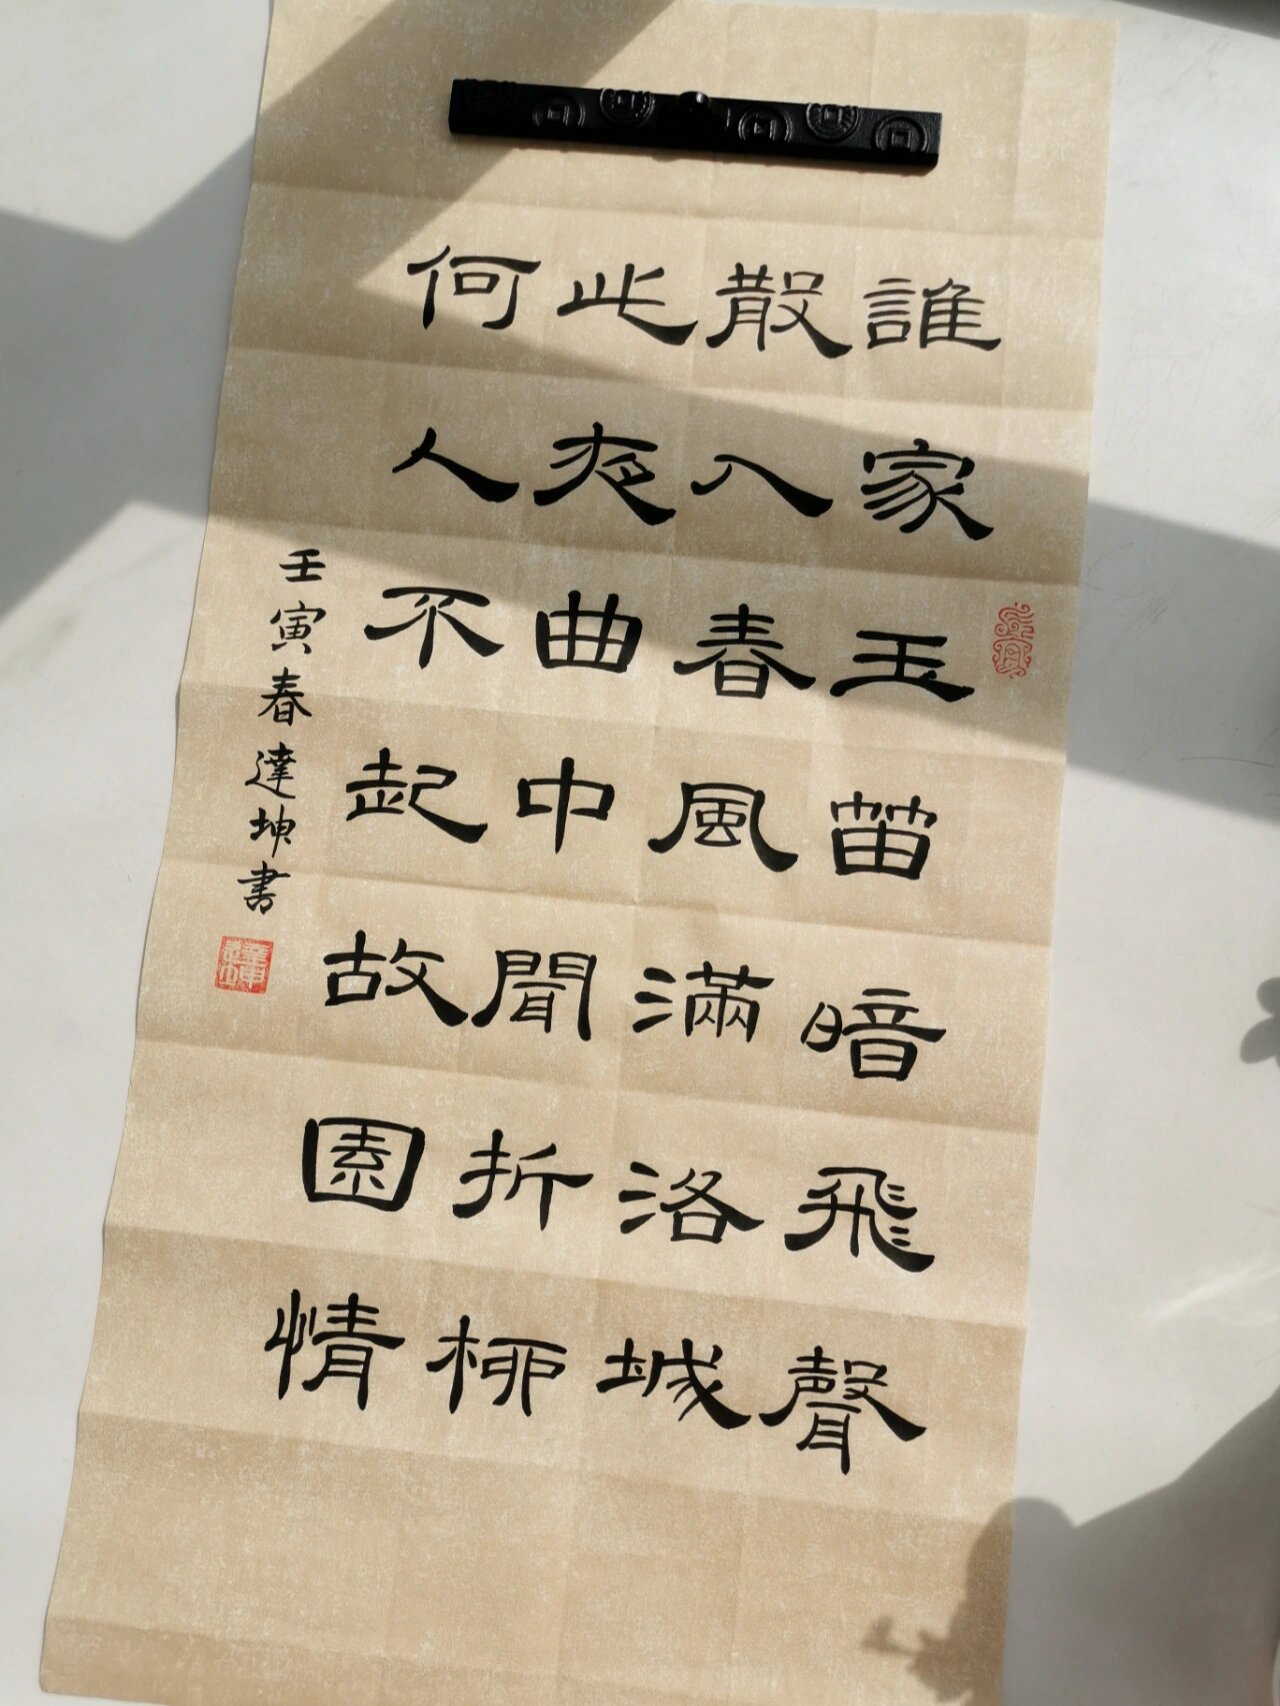 誰家玉笛暗飛聲
散入春風滿洛城
此夜曲中聞折柳
何人不起故園情
壬寅春達坤書